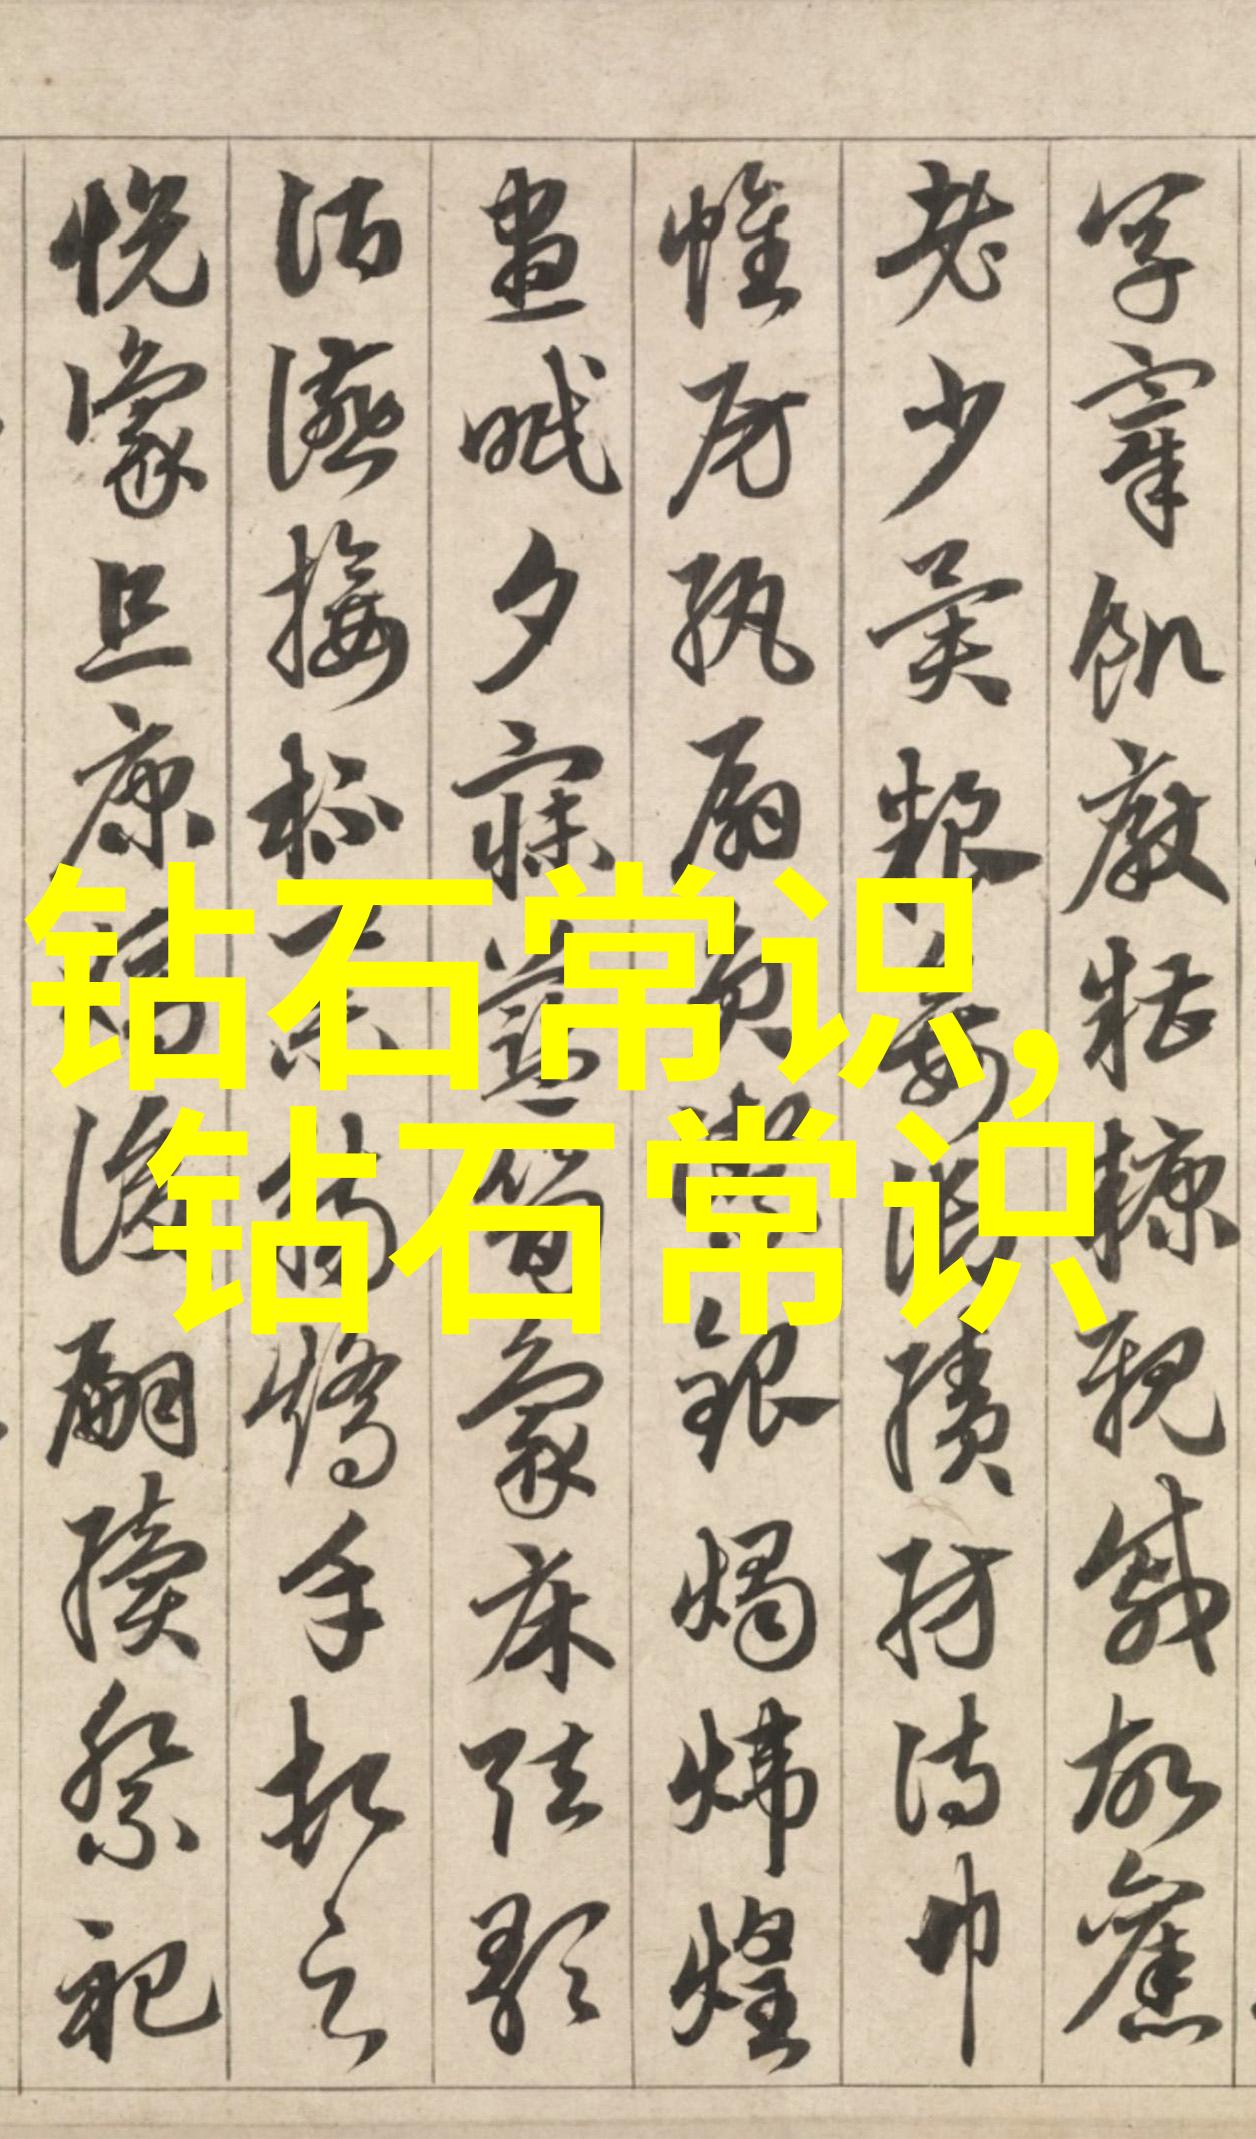 宰飢厭糟糠親戚故舊
老少異粮妾御績紡侍巾
帷房紈扇圓潔銀燭煒煌
晝眠夕寐藍筍象床弦歌
酒讌接杯舉觴矯手頓足
悅豫且康嫡後嗣續祭祀
钻石常识,
钻石常识